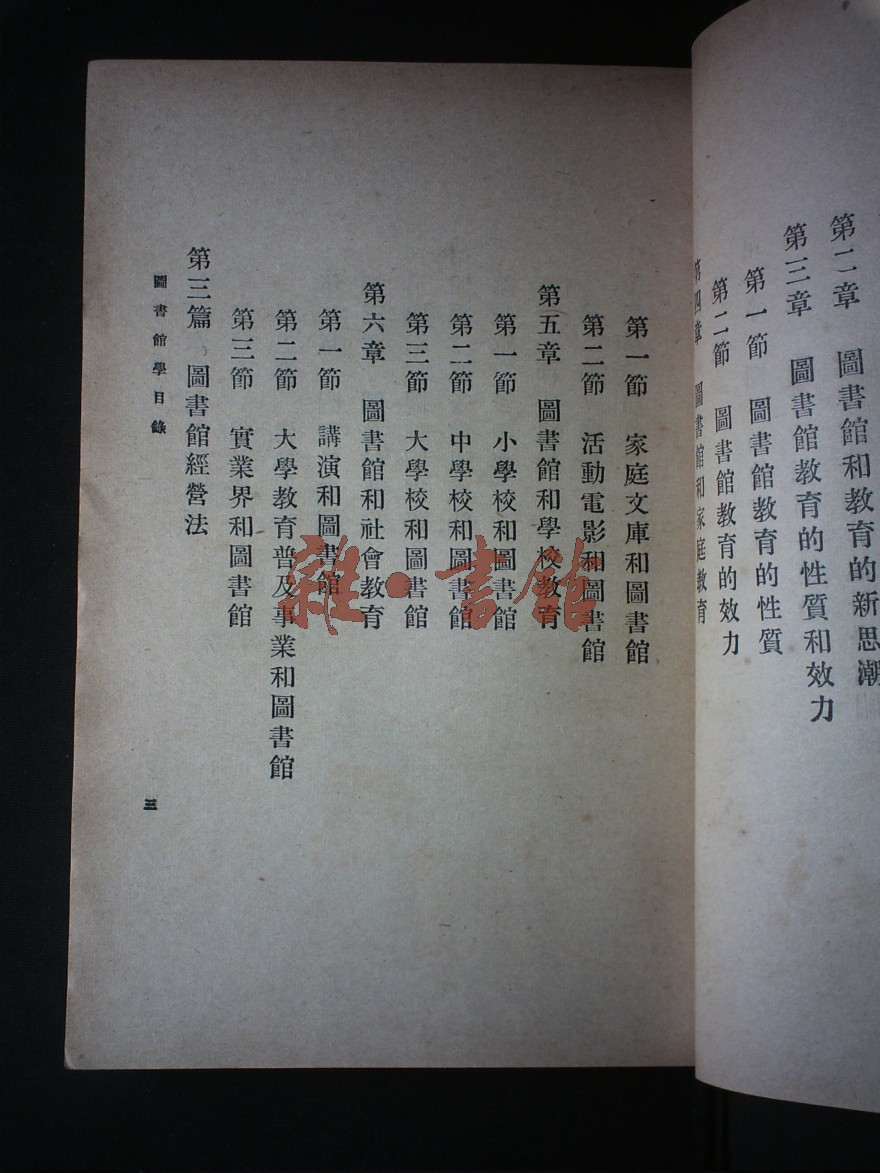 第二章　圖書館和教育的新思潮
第三章　圖書館教育的性質和效力
第一節　圖書館教育的性質
第二節　圖書館教育的效力
第四章　圖書館和家庭教育
第一節　家庭文庫和圖書館
第二節　活動電影和圖書館
第五章　圖書館和學校教育
第一節　小學校和圖書館
第二節　中學校和圖書館
第三節　大學校和圖書館
第六章　圖書館和社會教育
第一節　講演和圖書館
第二節　大學教育普及事業和圖書館
第三節　實業界和圖書館
第三篇　圖書館經營法
圖書館學目錄
三
雜·書館